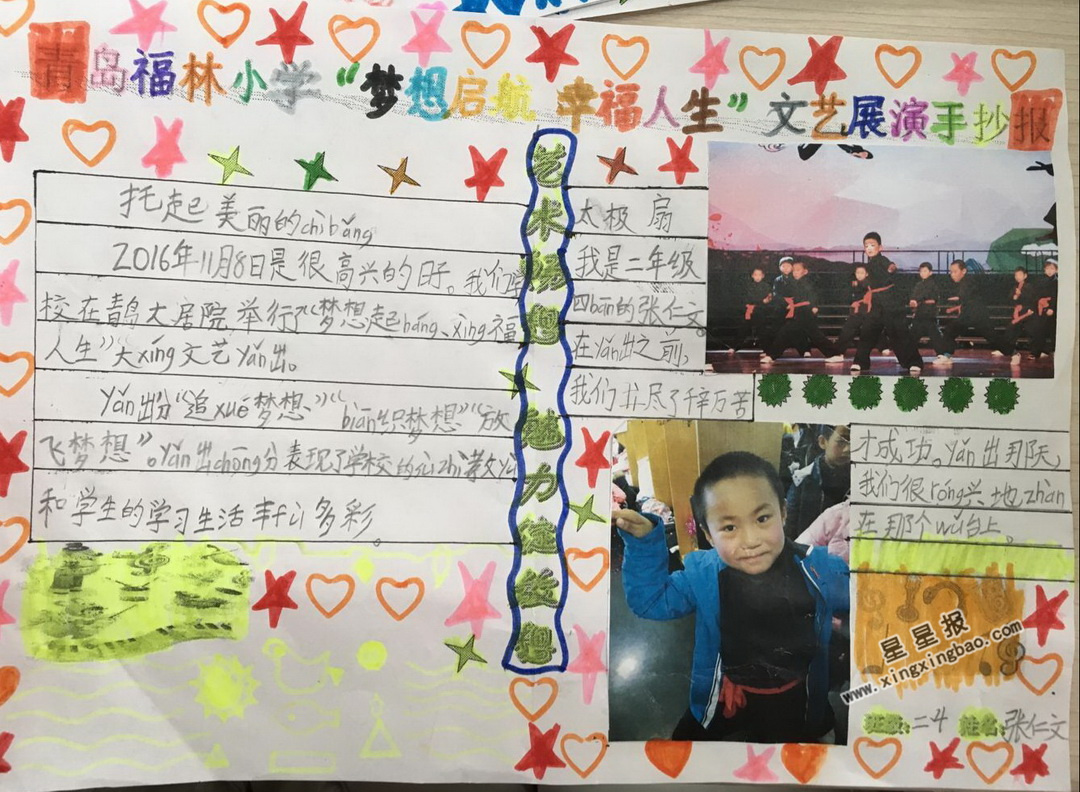 青岛福林小学“梦想启航 幸福人生”文艺展演手抄报
托起美丽的chìbǎng
2016年11月8日是很高兴的日子。我们学
校在青岛大居院举行了“梦想起háng、xìng福
人生”大xíng文艺yǎn出。
yǎn出分“追xué梦想、”“biān织梦想”“放
飞梦想”。yǎn出chōng分表现了学校的
和学生的学习生活丰fù多彩。
艺术 想 魅力 想
太极扇
我是二年级
四bān的张仁文。
在yǎn出之前,
我们 尽了千辛万苦
才成功。yǎn出那天,
我们很róng兴地zhàn
在那个wǔ台上。
星星报
www.xingxingbao.com
班级:二4 姓名:张仁文